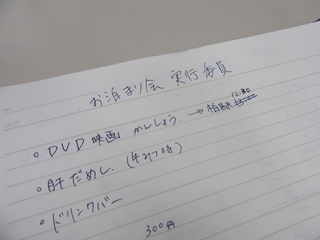 お泊まり会 実行委員
。DVD 映画 かんしょう → 柏駅 12:30
。肝だめし (4みつ時)
。ドリンクバー
300円